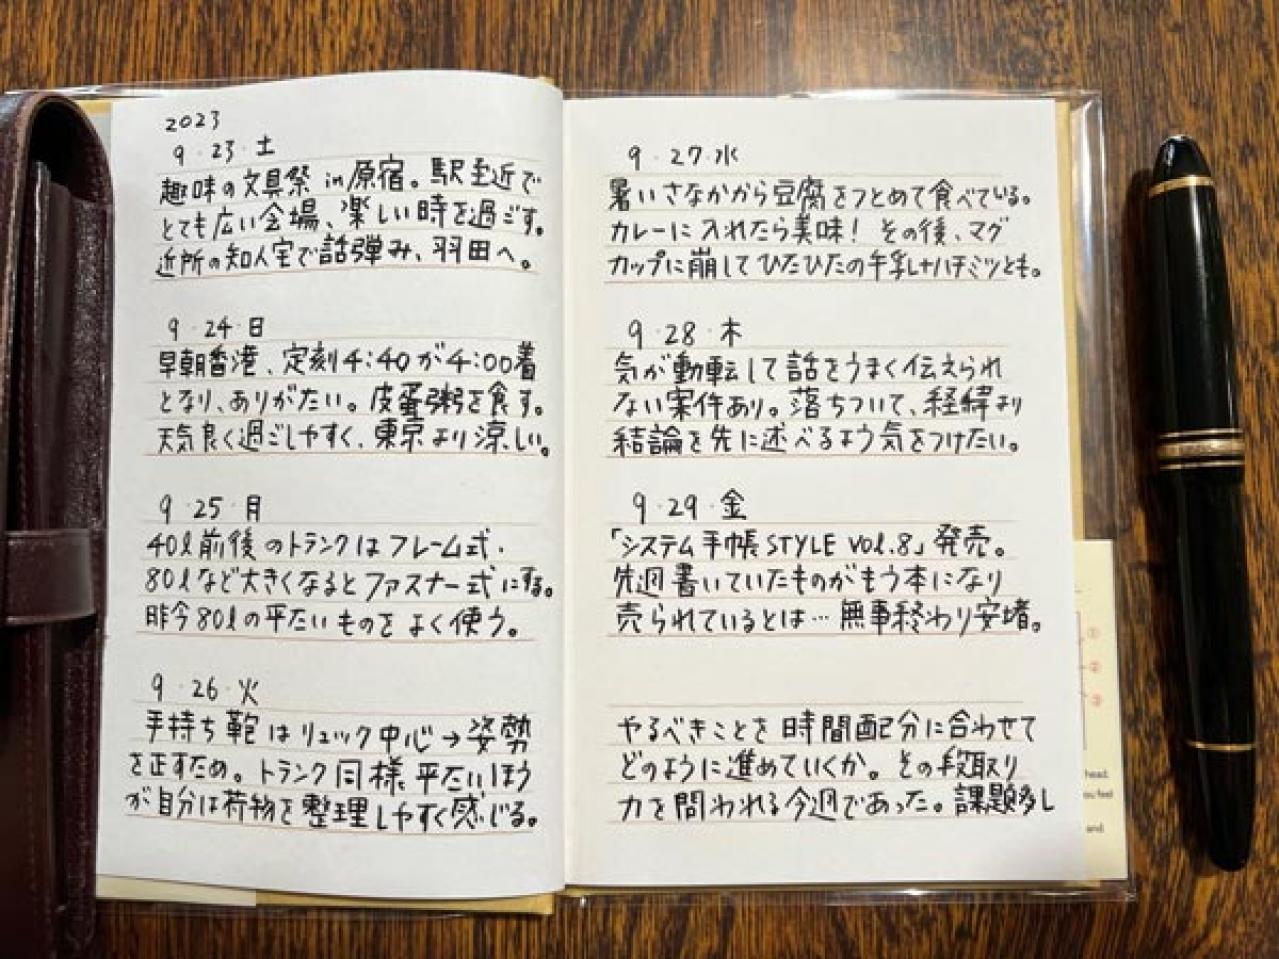 2023
9・23・土
趣味の文具祭 in 原宿。駅至近で
とても広い会場、楽しい時を過ごす。
近所の知人宅で話弾み、羽田へ。
9・24・日
早朝香港、定刻4:40が4:00着
となり、ありがたい。皮蛋粥を食す。
天気良く過ごしやすく、東京より涼しい。
9・25・月
40l前後のトランクはフレーム式・
80lなど大きくなるとファスナー式にする。
昨今80lの平たいものをよく使う。
9・26・火
手持ち鞄はリュック中心→姿勢
を正すため。トランク同様平たいほう
が自分は荷物を整理しやすく感じる。
9・27・水
暑いさなかから豆腐をつとめて食べている。
カレーに入れたら美味！その後、マグ
カップに崩してひたひたの牛乳+ハチミツとも。
9・28・木
気が動転して話をうまく伝えられ
ない案件あり。落ちついて、経緯より
結論を先に述べるよう気をつけたい。
9・29・金
「システム手帳STYLE vol.8」発売。
先週書いていたものがもう本になり
売られているとは…無事終わり安堵。
やるべきことを時間配分に合わせて
どのように進めていくか。その段取り
力を問われる今週であった。課題多し
①
②
③
head.
you feel
and